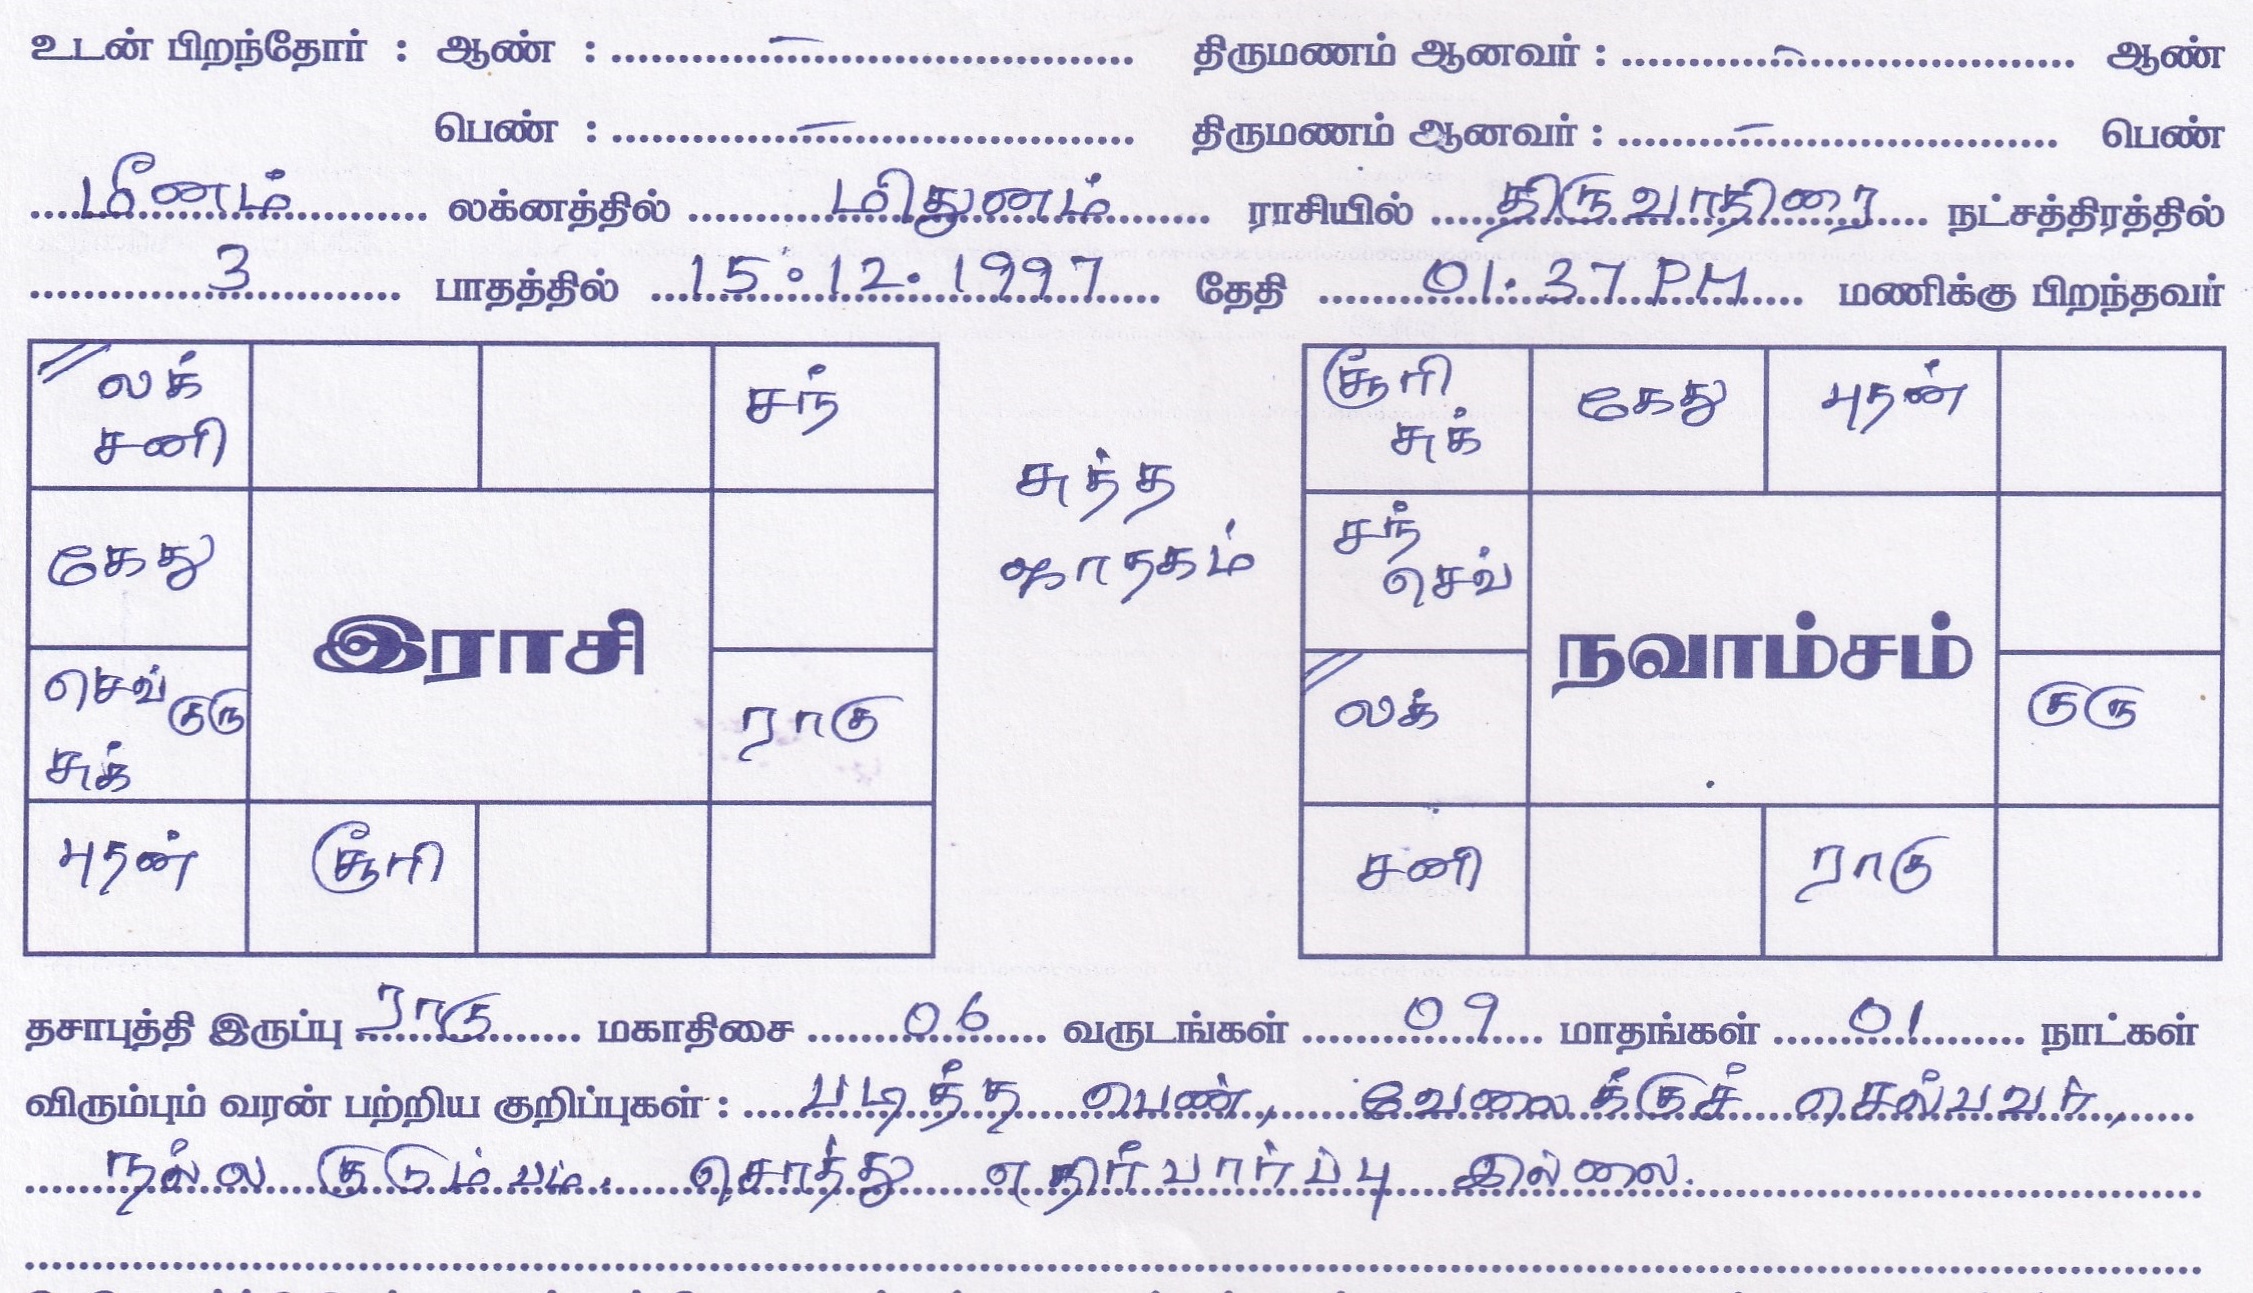 உடன் பிறந்தோர் : ஆண் : .......–....... திருமணம் ஆனவர் : .......–....... ஆண்
பெண் : .......–....... திருமணம் ஆனவர் : .......–....... பெண்
மீனம் லக்னத்தில் மிதுனம் ராசியில் திருவாதிரை நட்சத்திரத்தில்
3 பாதத்தில் 15.12.1997 தேதி 01.37 PM மணிக்கு பிறந்தவர்
லக் சனி
சந்
கேது
செவ் குரு சுக்
ராகு
புதன்
சூரி
இராசி
சுத்த
ஜாதகம்
சூரி சுக்
கேது
புதன்
சந் செவ்
லக்
குரு
சனி
ராகு
நவாம்சம்
தசாபுத்தி இருப்பு ராகு மகாதிசை 06 வருடங்கள் 09 மாதங்கள் 01 நாட்கள்
விரும்பும் வரன் பற்றிய குறிப்புகள் : படித்த பெண், வேலைக்குச் செல்பவர்,
நல்ல குடும்பம். சொத்து எதிர்பார்ப்பு இல்லை.